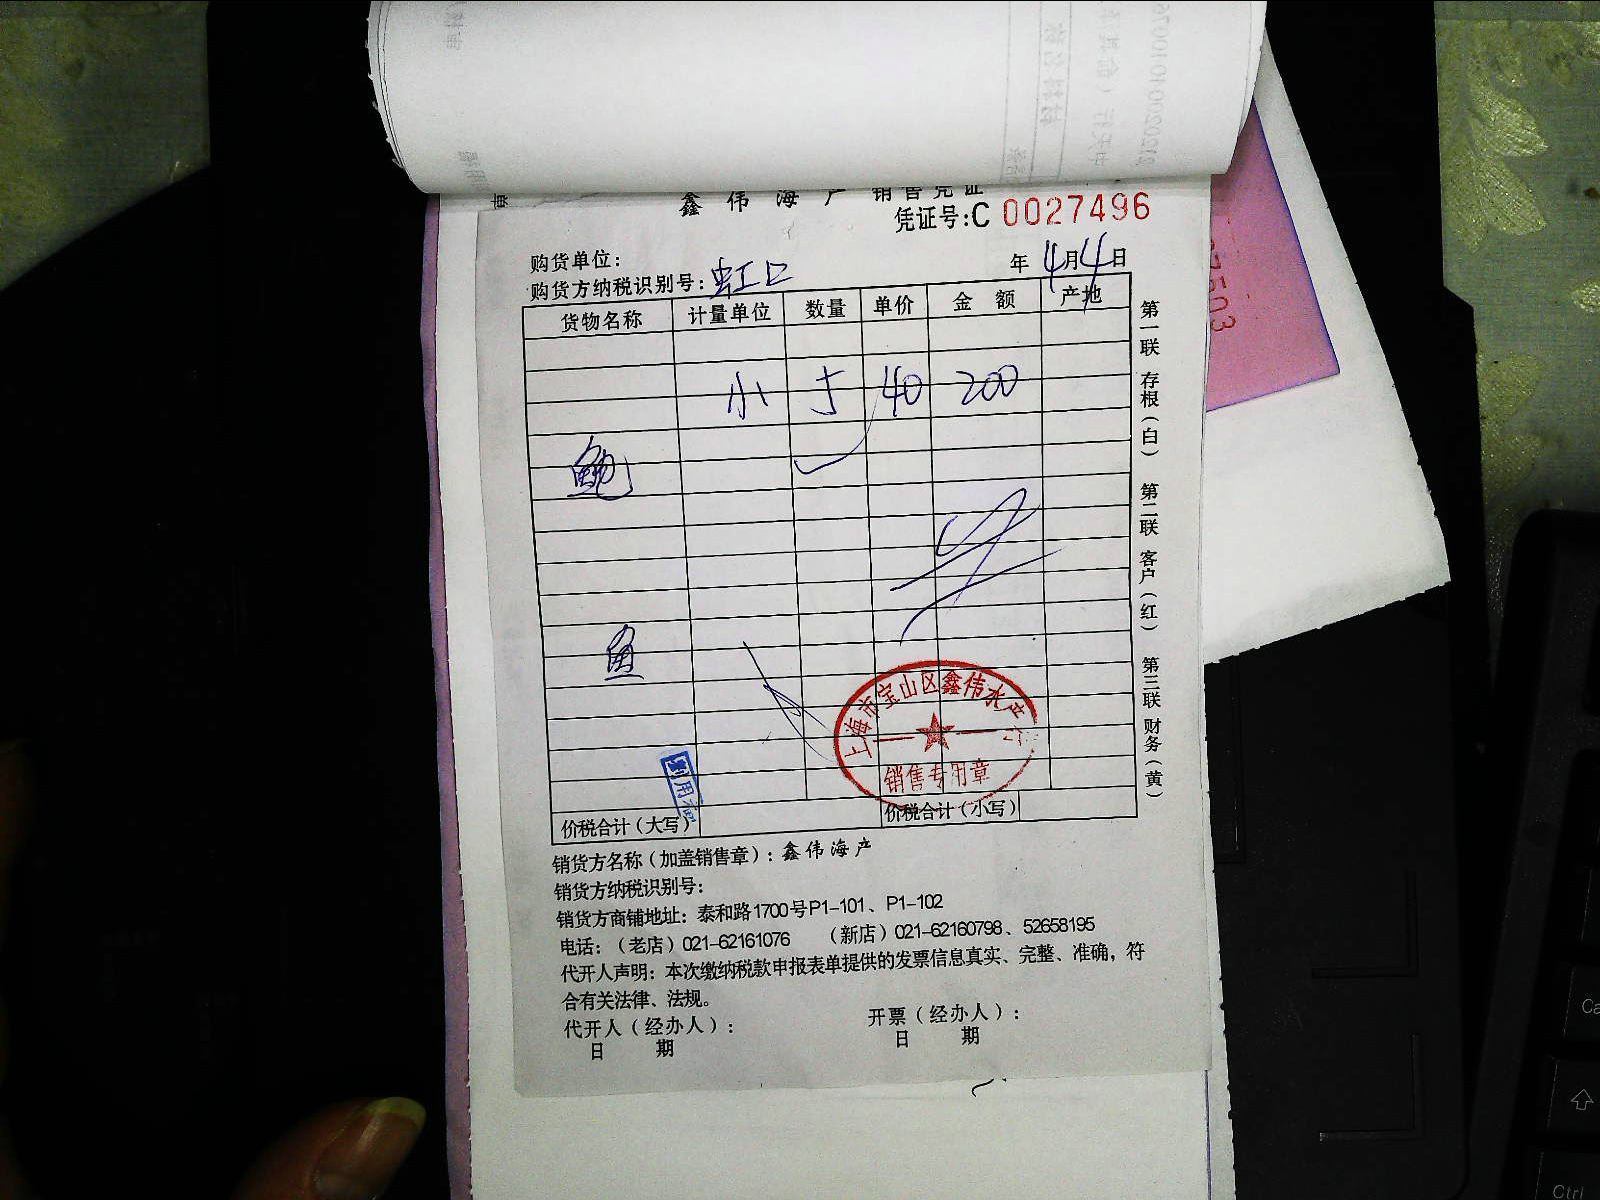 鑫伟海产 销售凭证
凭证号:C 0027496
购货单位:
年 4月4日
购货方纳税识别号: 虹口
货物名称 计量单位 数量 单价 金额 产地
小 5 40 200
鲍
鱼
上海市宝山区鑫伟水产
销售专用章
价税合计(大写) 价税合计(小写)
第一联 存根(白) 第二联 客户(红) 第三联 财务(黄)
销货方名称(加盖销售章): 鑫伟海产
销货方纳税识别号:
销货方商铺地址: 泰和路1700号P1-101、P1-102
电话:(老店)021-62161076 (新店)021-62160798、52658195
代开人声明: 本次缴纳税款申报表单提供的发票信息真实、完整、准确, 符
合有关法律、法规。
代开人(经办人): 开票(经办人):
日 期 日 期
Ctrl